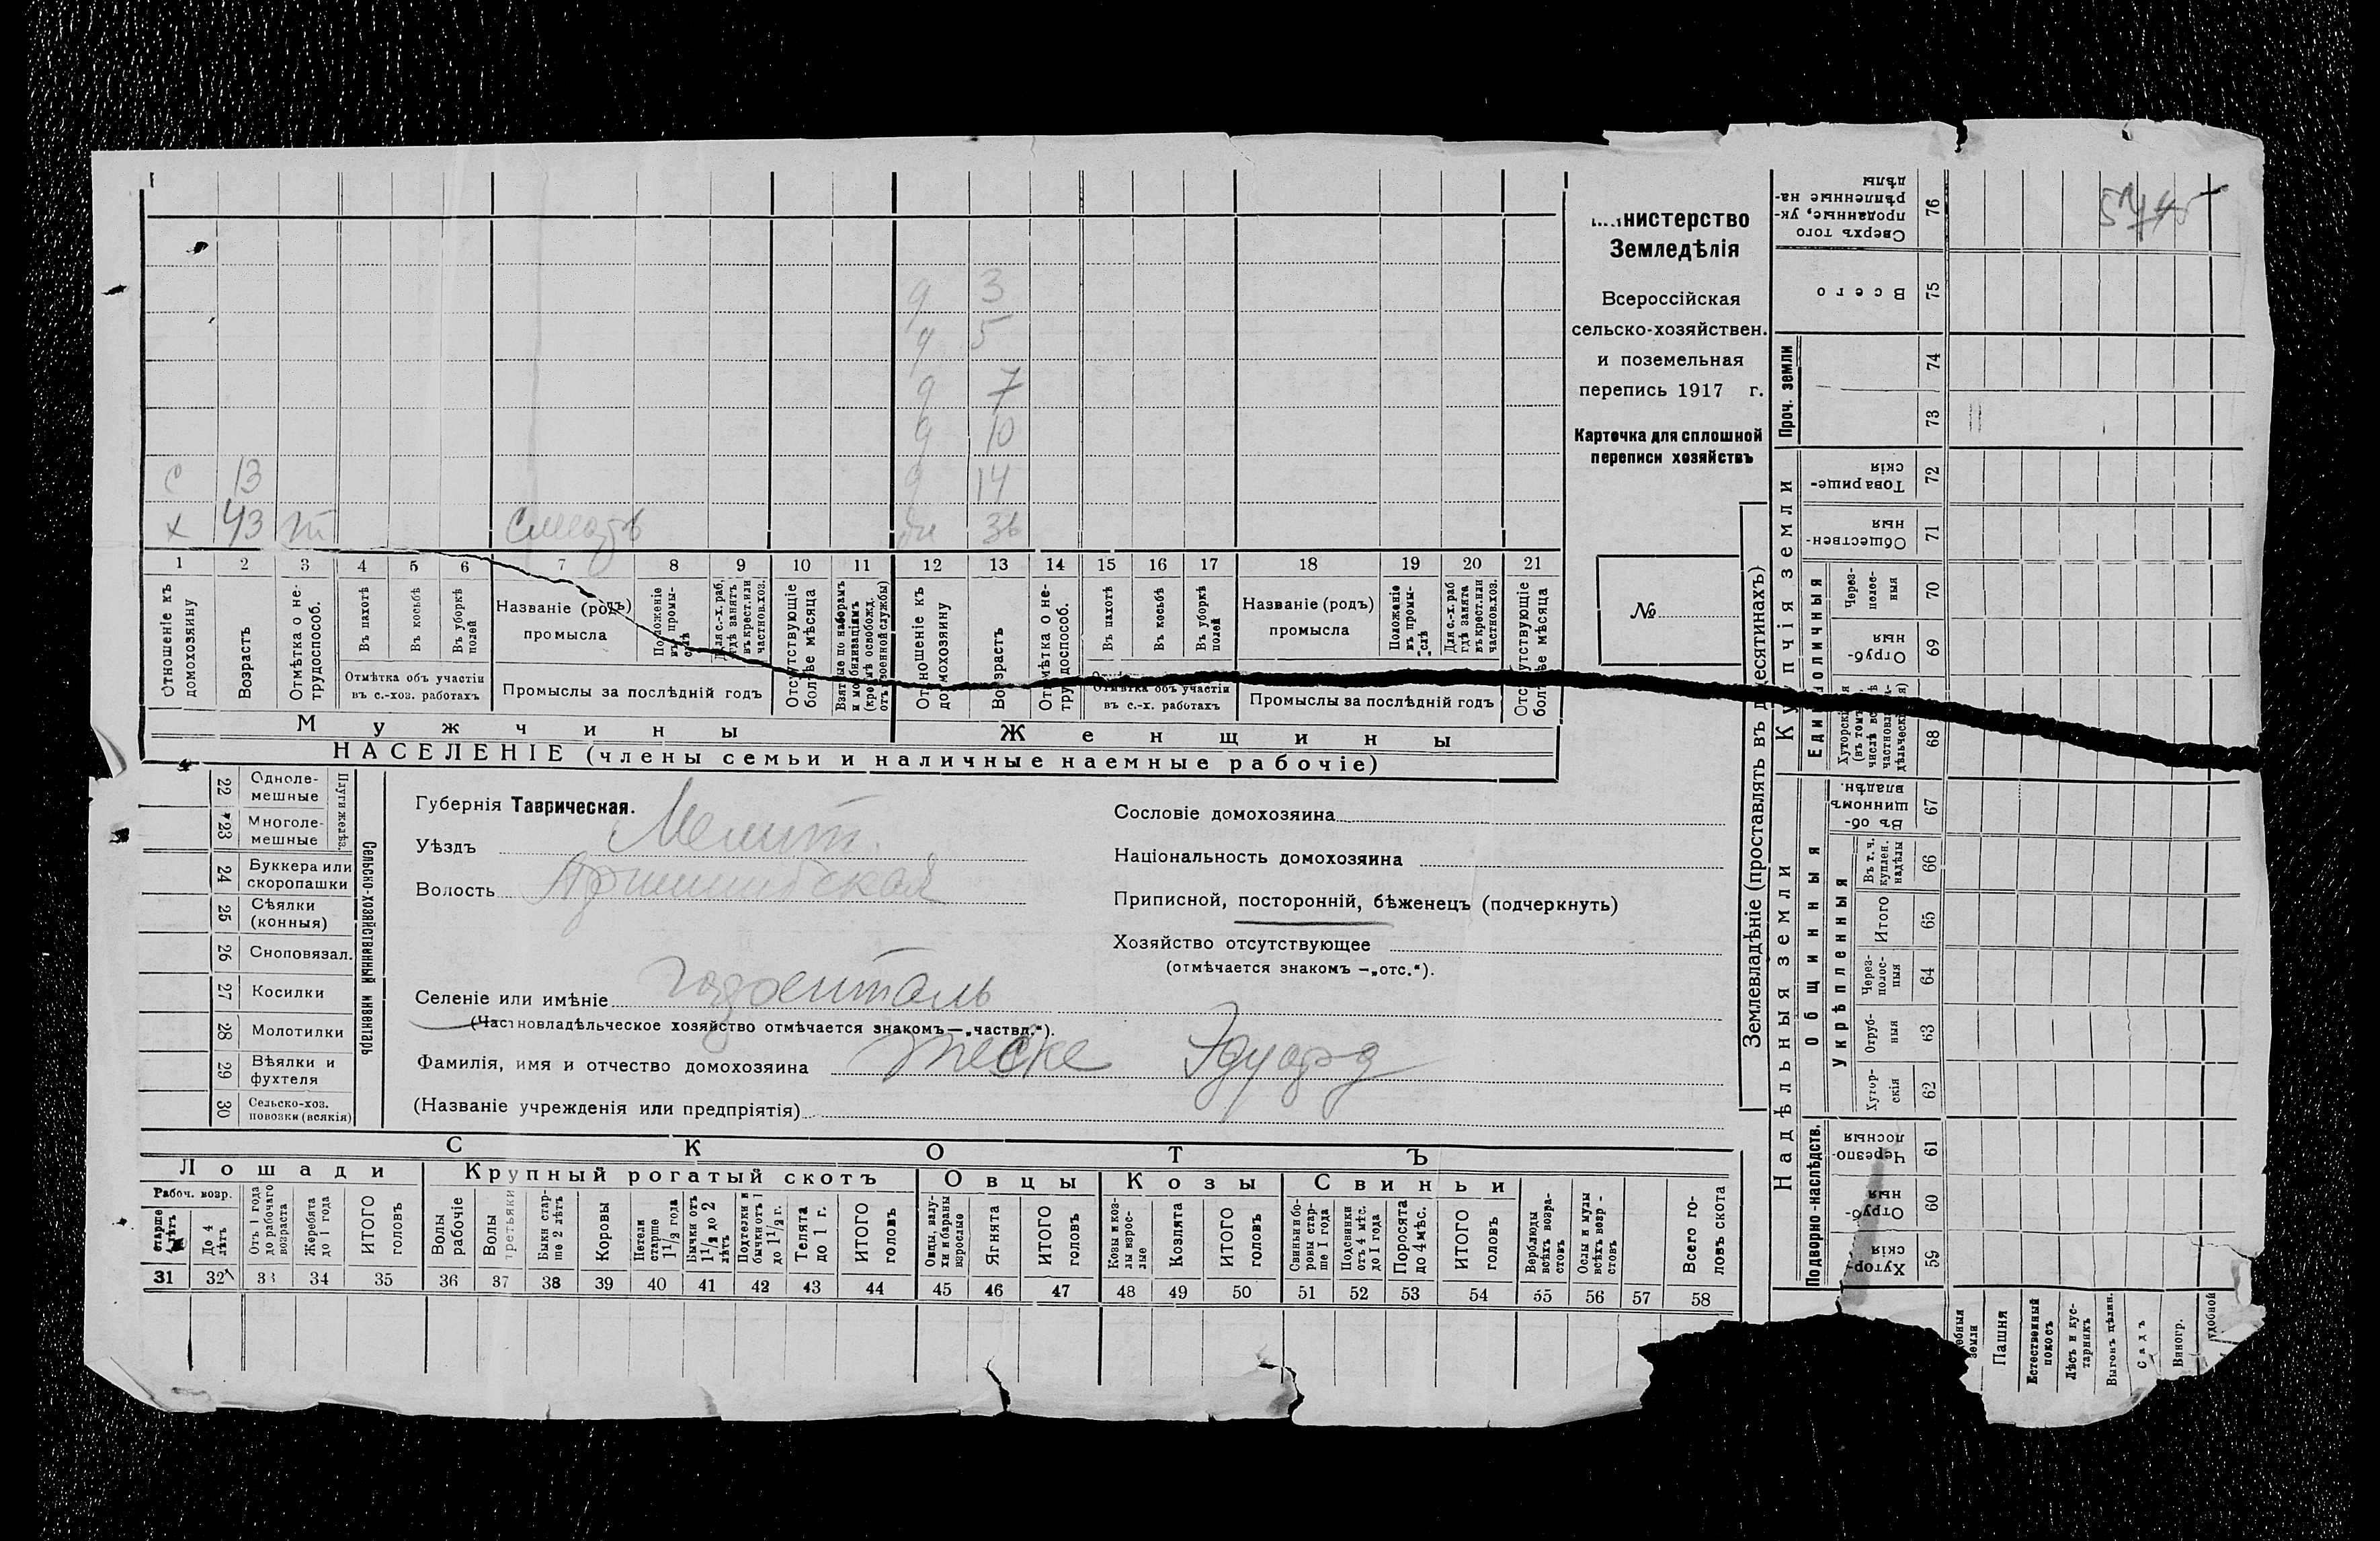 с 13 д 3
д 5
д 7
д 10
д 14
х 43 жн 36
1 2 3 4 5 6 7 8 9 10 11 12 13 14 15 16 17 18 19 20 21
Отношеніе къ домохозяину
Возрастъ
Отмѣтка о не-
трудоспособ.
Въ пахотѣ
Въ косьбѣ
Въ уборкѣ
полей
Отмѣтка объ участіи
въ с.-хоз. работахъ
Названіе (родъ)
промысла
Положеніе
въ промы-
слѣ
Для с.-х. раб.
гдѣ занятъ
въ крест. или
частнов. хоз.
Промыслы за послѣдній годъ
Отсутствующіе
болѣе мѣсяца
Взятые по наборамъ
и мобилизаціямъ
(кромѣ освобожд.
отъ военной службы)
Отношеніе къ
домохозяину
Возрастъ
Отмѣтка о не-
трудоспособ.
Въ пахотѣ
Въ косьбѣ
Въ уборкѣ
полей
Отмѣтка объ участіи
въ с.-х. работахъ
Названіе (родъ)
промысла
Положеніе
въ промы-
слѣ
Для с.-х. раб
гдѣ занята
въ крест. или
частнов. хоз.
Промыслы за послѣдній годъ
Отсутствующіе
болѣе мѣсяца
Мужчины
Женщины
НАСЕЛЕНІЕ (члены семьи и наличные наемные рабочіе)
нистерство
Земледѣлія
Всероссійская
сельско-хозяйствен.
и поземельная
перепись 1917 г.
Карточка для сплошной
переписи хозяйствъ
№
22 Одноле-
мешные
23 Многоле-
мешные
Плуги желѣз.
24 Буккера или
скоропашки
25 Сѣялки
(конныя)
26 Сноповязал.
27 Косилки
28 Молотилки
29 Вѣялки и
фухтеля
30 Сельско-хоз.
повозки (всякія)
Сельско-хозяйственный инвентарь
Губернія Таврическая.
Уѣздъ Мелит.
Волость
Селеніе или имѣніе
(Частновладѣльческое хозяйство отмѣчается знакомъ—„частвл.“).
Фамилія, имя и отчество домохозяина Теске Эдуард
(Названіе учрежденія или предпріятія)
Сословіе домохозяина
Національность домохозяина
Приписной, посторонній, бѣженецъ (подчеркнуть)
Хозяйство отсутствующее
(отмѣчается знакомъ —„отс.“).
СКОТЪ
Лошади
Крупный рогатый скотъ
Овцы
Козы
Свиньи
Рабоч. возр.
старше
4 лѣтъ
До 4
лѣтъ
Отъ 1 года
до рабочаго
возраста
Жеребята
до 1 года
ИТОГО
головъ
Волы
рабочіе
Волы
третьяки
Быки стар-
ше 2 лѣтъ
Коровы
Нетели
старше
1½ года
Бычки отъ
1½ до 2
лѣтъ
Подтелки и
бычки отъ 1
до 1½ г.
Телята
до 1 г.
ИТОГО
головъ
Овцы, валу-
хи и бараны
взрослые
Ягнята
ИТОГО
головъ
Козы и коз-
лы взрос-
лые
Козлята
ИТОГО
головъ
Свиньи и бо-
ровы стар-
ше 1 года
Подсвинки
отъ 4 мѣс.
до 1 года
Поросята
до 4 мѣс.
ИТОГО
головъ
Верблюды
всѣхъ возра-
стовъ
Ослы и мулы
всѣхъ возр-
стовъ
Всего го-
ловъ скота
31 32 33 34 35 36 37 38 39 40 41 42 43 44 45 46 47 48 49 50 51 52 53 54 55 56 57 58
Землевладѣніе (проставлять въ десятинахъ)
Купчія земли
Надѣльныя земли
Сверхъ того
проданные, ук-
рѣпленные на-
дѣлы
76
Всего
75
Проч. земли
74
73
Товарище-
скія
72
Обществен-
ныя
71
Единоличныя
Через-
полос-
ныя
70
Отруб-
ныя
69
68
Общинныя
Въ об-
щинномъ
владѣн.
67
Укрѣпленныя
Въ т. ч.
куплен.
надѣлы
66
Итого
65
Через-
полос-
ныя
64
Отруб-
ныя
63
Хутор-
скія
62
Подворно-наслѣдств.
Черезпо-
лосныя
61
Отруб-
ныя
60
Хутор-
скія
59
Пашня
Естественный
покосъ
Лѣсъ и кус-
тарникъ
Выгонъ цѣлин.
Садъ
Виногр.